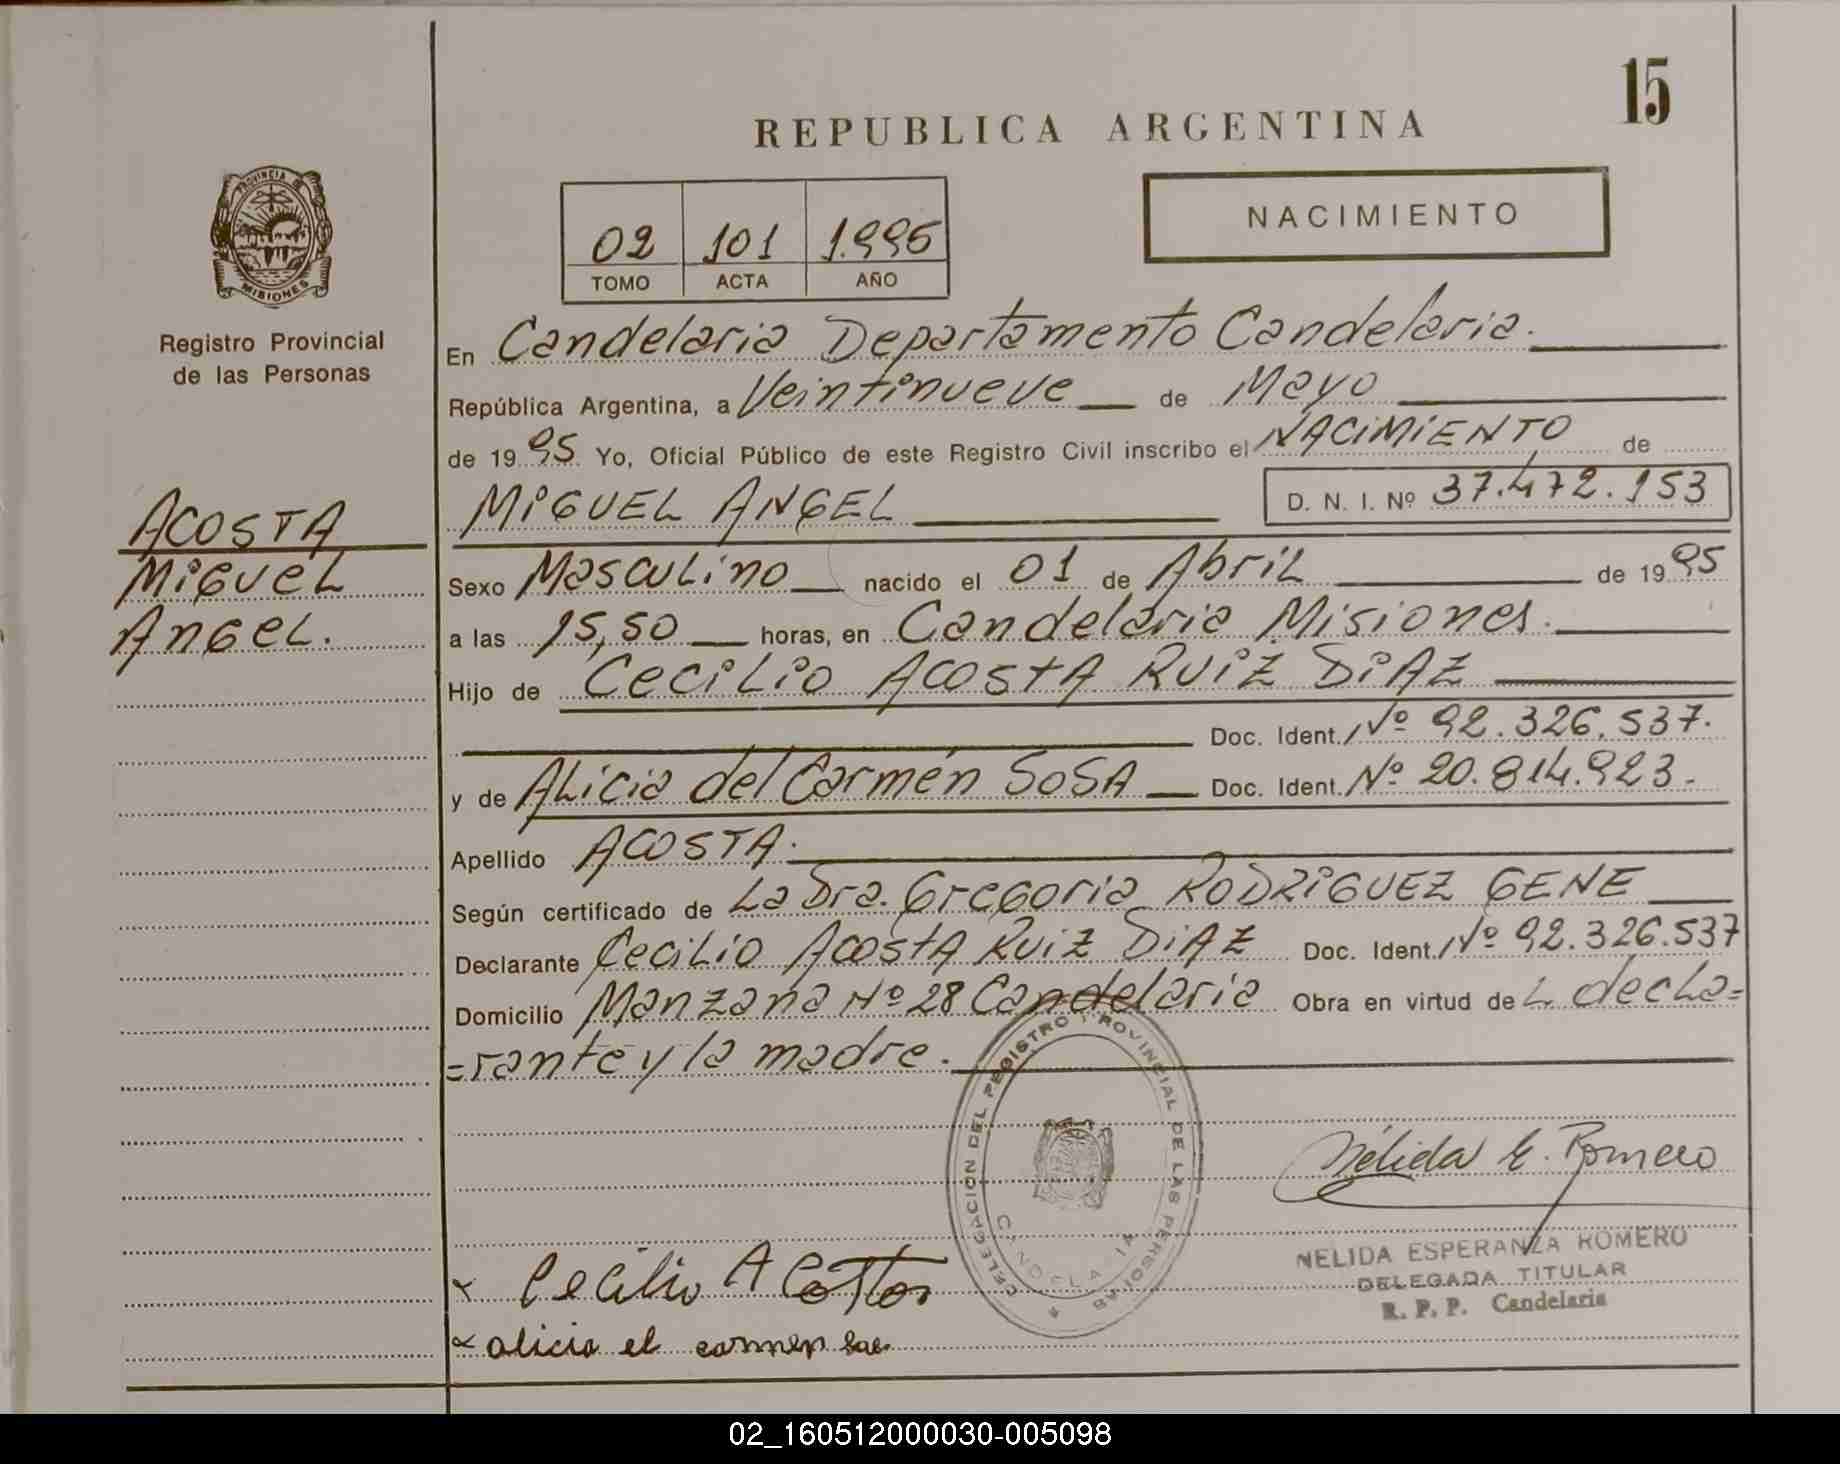 15
REPUBLICA ARGENTINA
NACIMIENTO
02 101 1.995
TOMO ACTA AÑO
PROVINCIA DE
MISIONES
Registro Provincial
de las Personas
ACOSTA
MIGUEL
ANGEL.
En Candelaria Departamento Candelaria.
República Argentina, a Veintinueve de Mayo
de 1995 Yo, Oficial Público de este Registro Civil inscribo el NACIMIENTO de
MIGUEL ANGEL D. N. I. Nº 37.472.153
Sexo Masculino nacido el 01 de Abril de 1995
a las 15,50 horas, en Candelaria Misiones.
Hijo de Cecilio ACOSTA RUIZ DIAZ
Doc. Ident. Nº 92.326.537.
y de Alicia del Carmen SOSA Doc. Ident. Nº 20.814.923.-
Apellido ACOSTA.
Según certificado de La Dra. Gregoria RODRIGUEZ GENE
Declarante Cecilio ACOSTA RUIZ DIAZ Doc. Ident. Nº 92.326.537
Domicilio Manzana Nº 28 Candelaria Obra en virtud de L decla=
=rante y la madre.
DELEGACION DEL REGISTRO PROVINCIAL DE LAS PERSONAS
CANDELARIA
Nélida E. Romero
NELIDA ESPERANZA ROMERO
DELEGADA TITULAR
R. P. P. Candelaria
Cecilio Acosta
alicia el carmen
02_160512000030-005098